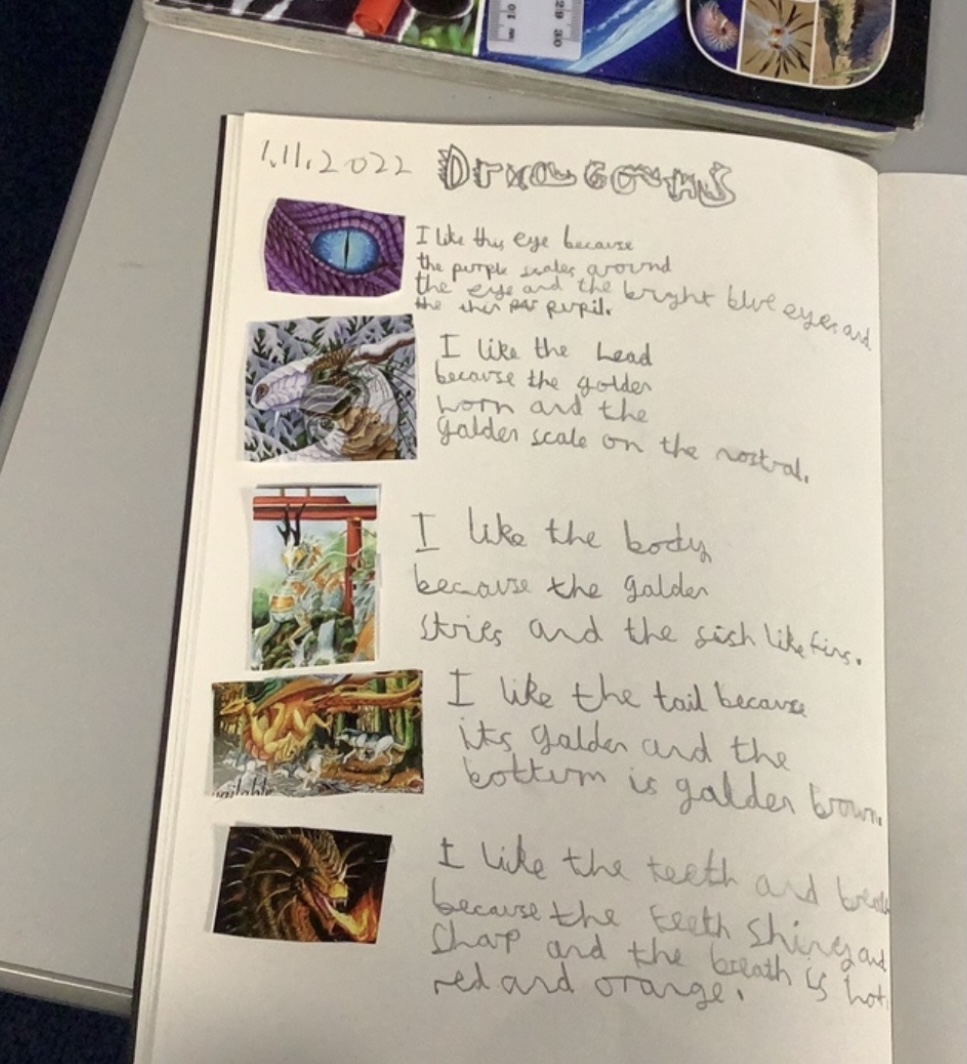 10
29 30
1.11.2022 Draegowns
I like this eye because
the purple scales around
the eye and the bright blue eyes and
the thin pupil.
I like the head
because the golden
horn and the
galden scale on the nostral.
I like the body
because the galden
stries and the sish like fins.
I like the tail because
its galden and the
bottum is galden brown.
available
I like the teeth and breath
because the teeth shiney and
Shap and the breath is hot
red and orange.